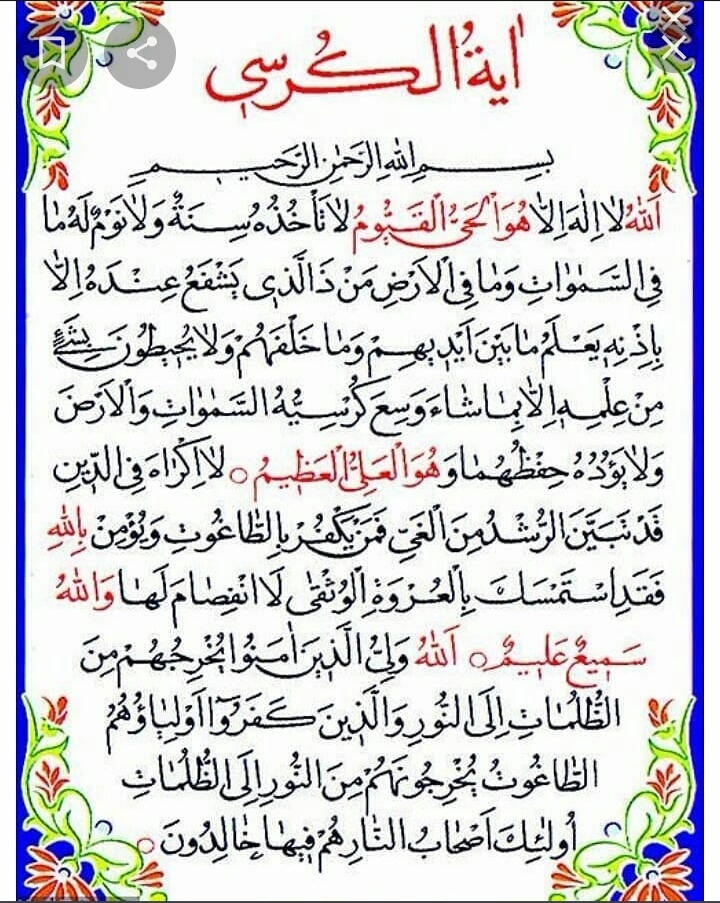 اٰيةُ الكُرسي
بِسْمِ اللهِ الرَّحْمٰنِ الرَّحيمِ
اَللهُ لا اِلٰهَ اِلّا هُوَ الْحَيُّ الْقَيُّومُ لا تَأْخُذُهُ سِنَةٌ وَلا نَوْمٌ لَهُ ما
فِي السَّمٰوٰاتِ وَما فِي الْاَرْضِ مَنْ ذَا الَّذي يَشْفَعُ عِنْدَهُ اِلّا
بِاِذْنِه يَعْلَمُ ما بَيْنَ اَيْديهِمْ وَما خَلْفَهُمْ وَلا يُحيطُونَ بِشَيْءٍ
مِنْ عِلْمِه اِلّا بِما شاءَ وَسِعَ كُرْسِيُّهُ السَّمٰوٰاتِ وَالْاَرْضَ
وَلا يَؤُدُهُ حِفْظُهُما وَهُوَ الْعَلِيُّ الْعَظيمُ ○ لا اِكْراهَ فِي الدّينِ
قَدْ تَبَيَّنَ الرُّشْدُ مِنَ الْغَيِّ فَمَنْ يَكْفُرْ بِالطّاغُوتِ وَيُؤْمِنْ بِاللهِ
فَقَدِ اسْتَمْسَكَ بِالْعُرْوَةِ الْوُثْقٰى لَا انْفِصامَ لَها وَاللهُ
سَميعٌ عَليمٌ ○ اَللهُ وَلِيُّ الَّذينَ اٰمَنُوا يُخْرِجُهُمْ مِنَ
الظُّلُماتِ اِلَى النُّورِ وَالَّذينَ كَفَرُوا اَوْلِياؤُهُمُ
الطّاغُوتُ يُخْرِجُونَهُمْ مِنَ النُّورِ اِلَى الظُّلُماتِ
اُولٰئِكَ اَصْحابُ النّارِ هُمْ فيها خالِدُونَ ○